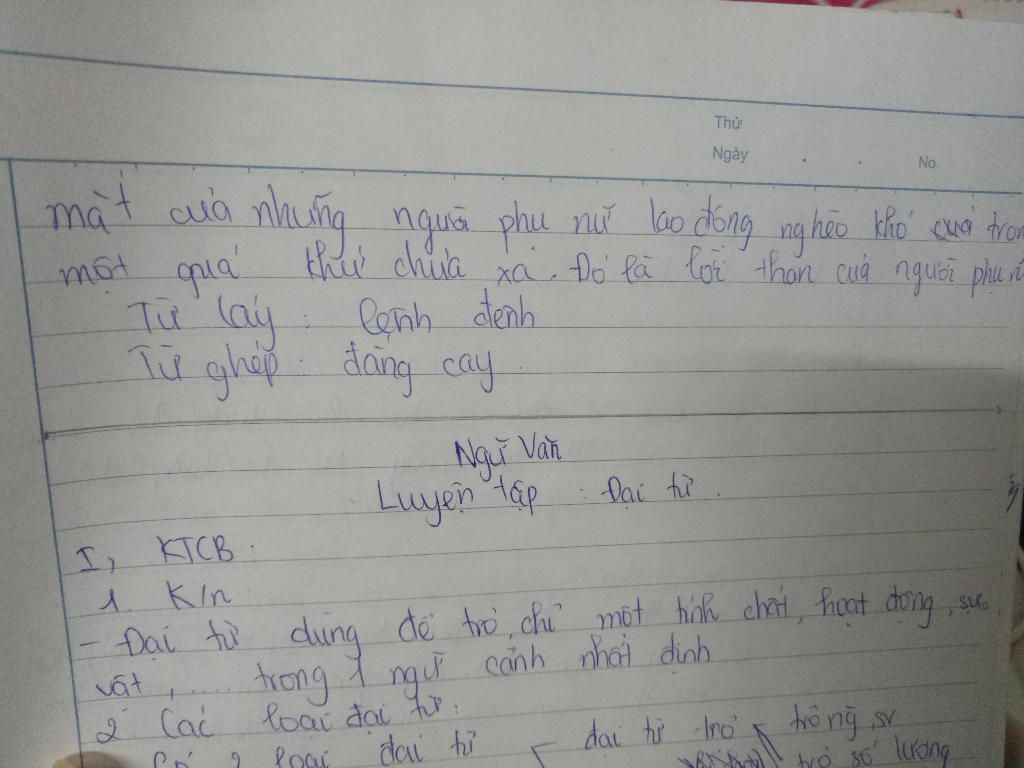 Thứ
Ngày . . No.
mặt của những người phụ nữ lao động nghèo khó quá tron
một quá khứ chưa xa. Đó là lời than của người phụ n
Từ láy : lênh đênh
Từ ghép : đắng cay.
Ngữ Văn
Luyện tập : Đại từ.
I, KTCB:
1. K/n
- Đại từ dùng để trỏ, chỉ một tính chất, hoạt động, sự
vật, ..... trong 1 ngữ cảnh nhất định
2. Các loại đại từ:
Có 2 loại đại từ đại từ trỏ
trỏ số lượng